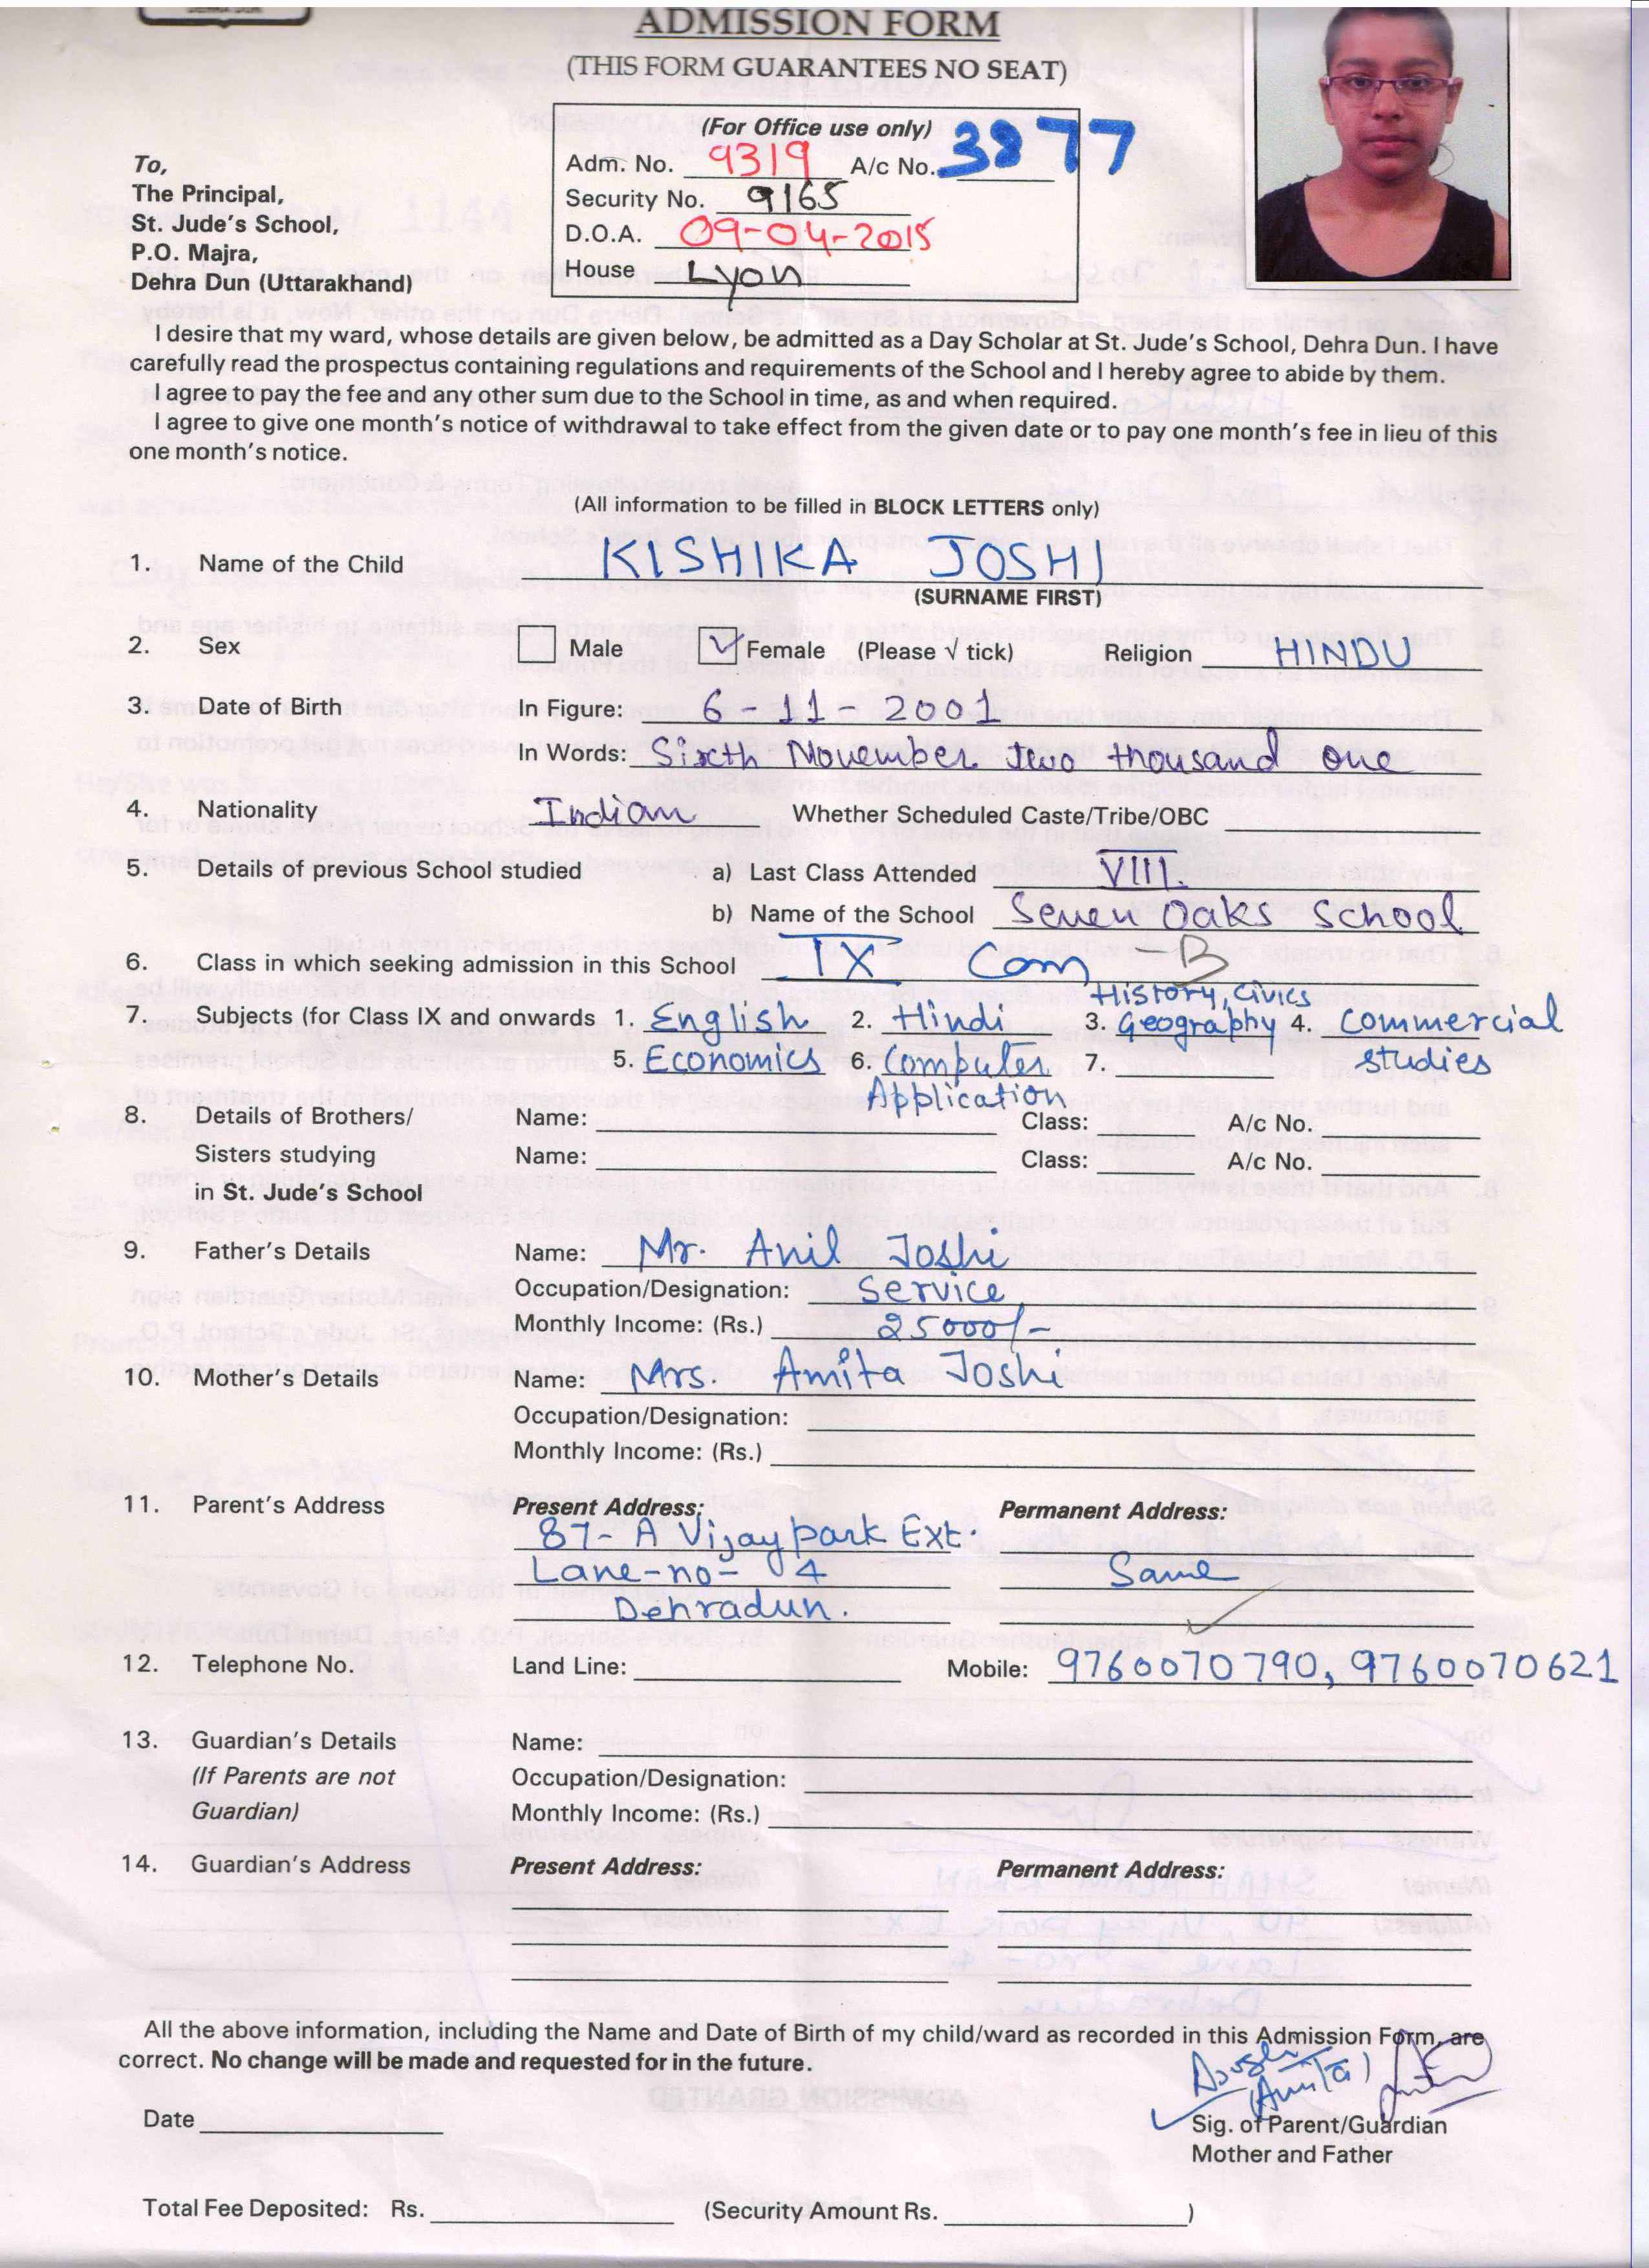 ADMISSION FORM
(THIS FORM GUARANTEES NO SEAT)
(For Office use only)
Adm. No. 9319 A/c No. 3877
Security No. 9165
D.O.A. 09-04-2015
House Lyon
To,
The Principal,
St. Jude's School,
P.O. Majra,
Dehra Dun (Uttarakhand)
I desire that my ward, whose details are given below, be admitted as a Day Scholar at St. Jude's School, Dehra Dun. I have
carefully read the prospectus containing regulations and requirements of the School and I hereby agree to abide by them.
I agree to pay the fee and any other sum due to the School in time, as and when required.
I agree to give one month's notice of withdrawal to take effect from the given date or to pay one month's fee in lieu of this
one month's notice.
(All information to be filled in BLOCK LETTERS only)
1. Name of the Child KISHIKA JOSHI
(SURNAME FIRST)
2. Sex Male Female (Please √ tick) Religion HINDU
3. Date of Birth In Figure: 6-11-2001
In Words: Sixth November Two thousand one
4. Nationality Indian Whether Scheduled Caste/Tribe/OBC
5. Details of previous School studied a) Last Class Attended VIII.
b) Name of the School Seven Oaks School
6. Class in which seeking admission in this School IX Com - B
History, Civics
7. Subjects (for Class IX and onwards 1. English 2. Hindi 3. Geography 4. Commercial
5. Economics 6. Computer 7. studies
Application
8. Details of Brothers/ Name: Class: A/c No.
Sisters studying Name: Class: A/c No.
in St. Jude's School
9. Father's Details Name: Mr. Anil Joshi
Occupation/Designation: Service,
Monthly Income: (Rs.) 25000/-
10. Mother's Details Name: Mrs. Amita Joshi
Occupation/Designation:
Monthly Income: (Rs.)
11. Parent's Address Present Address: Permanent Address:
87-A Vijay park Ext.
Lane-no- 4 Same
Dehradun.
12. Telephone No. Land Line: Mobile: 9760070790, 9760070621
13. Guardian's Details Name:
(If Parents are not Occupation/Designation:
Guardian) Monthly Income: (Rs.)
14. Guardian's Address Present Address: Permanent Address:
All the above information, including the Name and Date of Birth of my child/ward as recorded in this Admission Form, are
correct. No change will be made and requested for in the future.
(Amita)
Date
Sig. of Parent/Guardian
Mother and Father
Total Fee Deposited: Rs. (Security Amount Rs. )